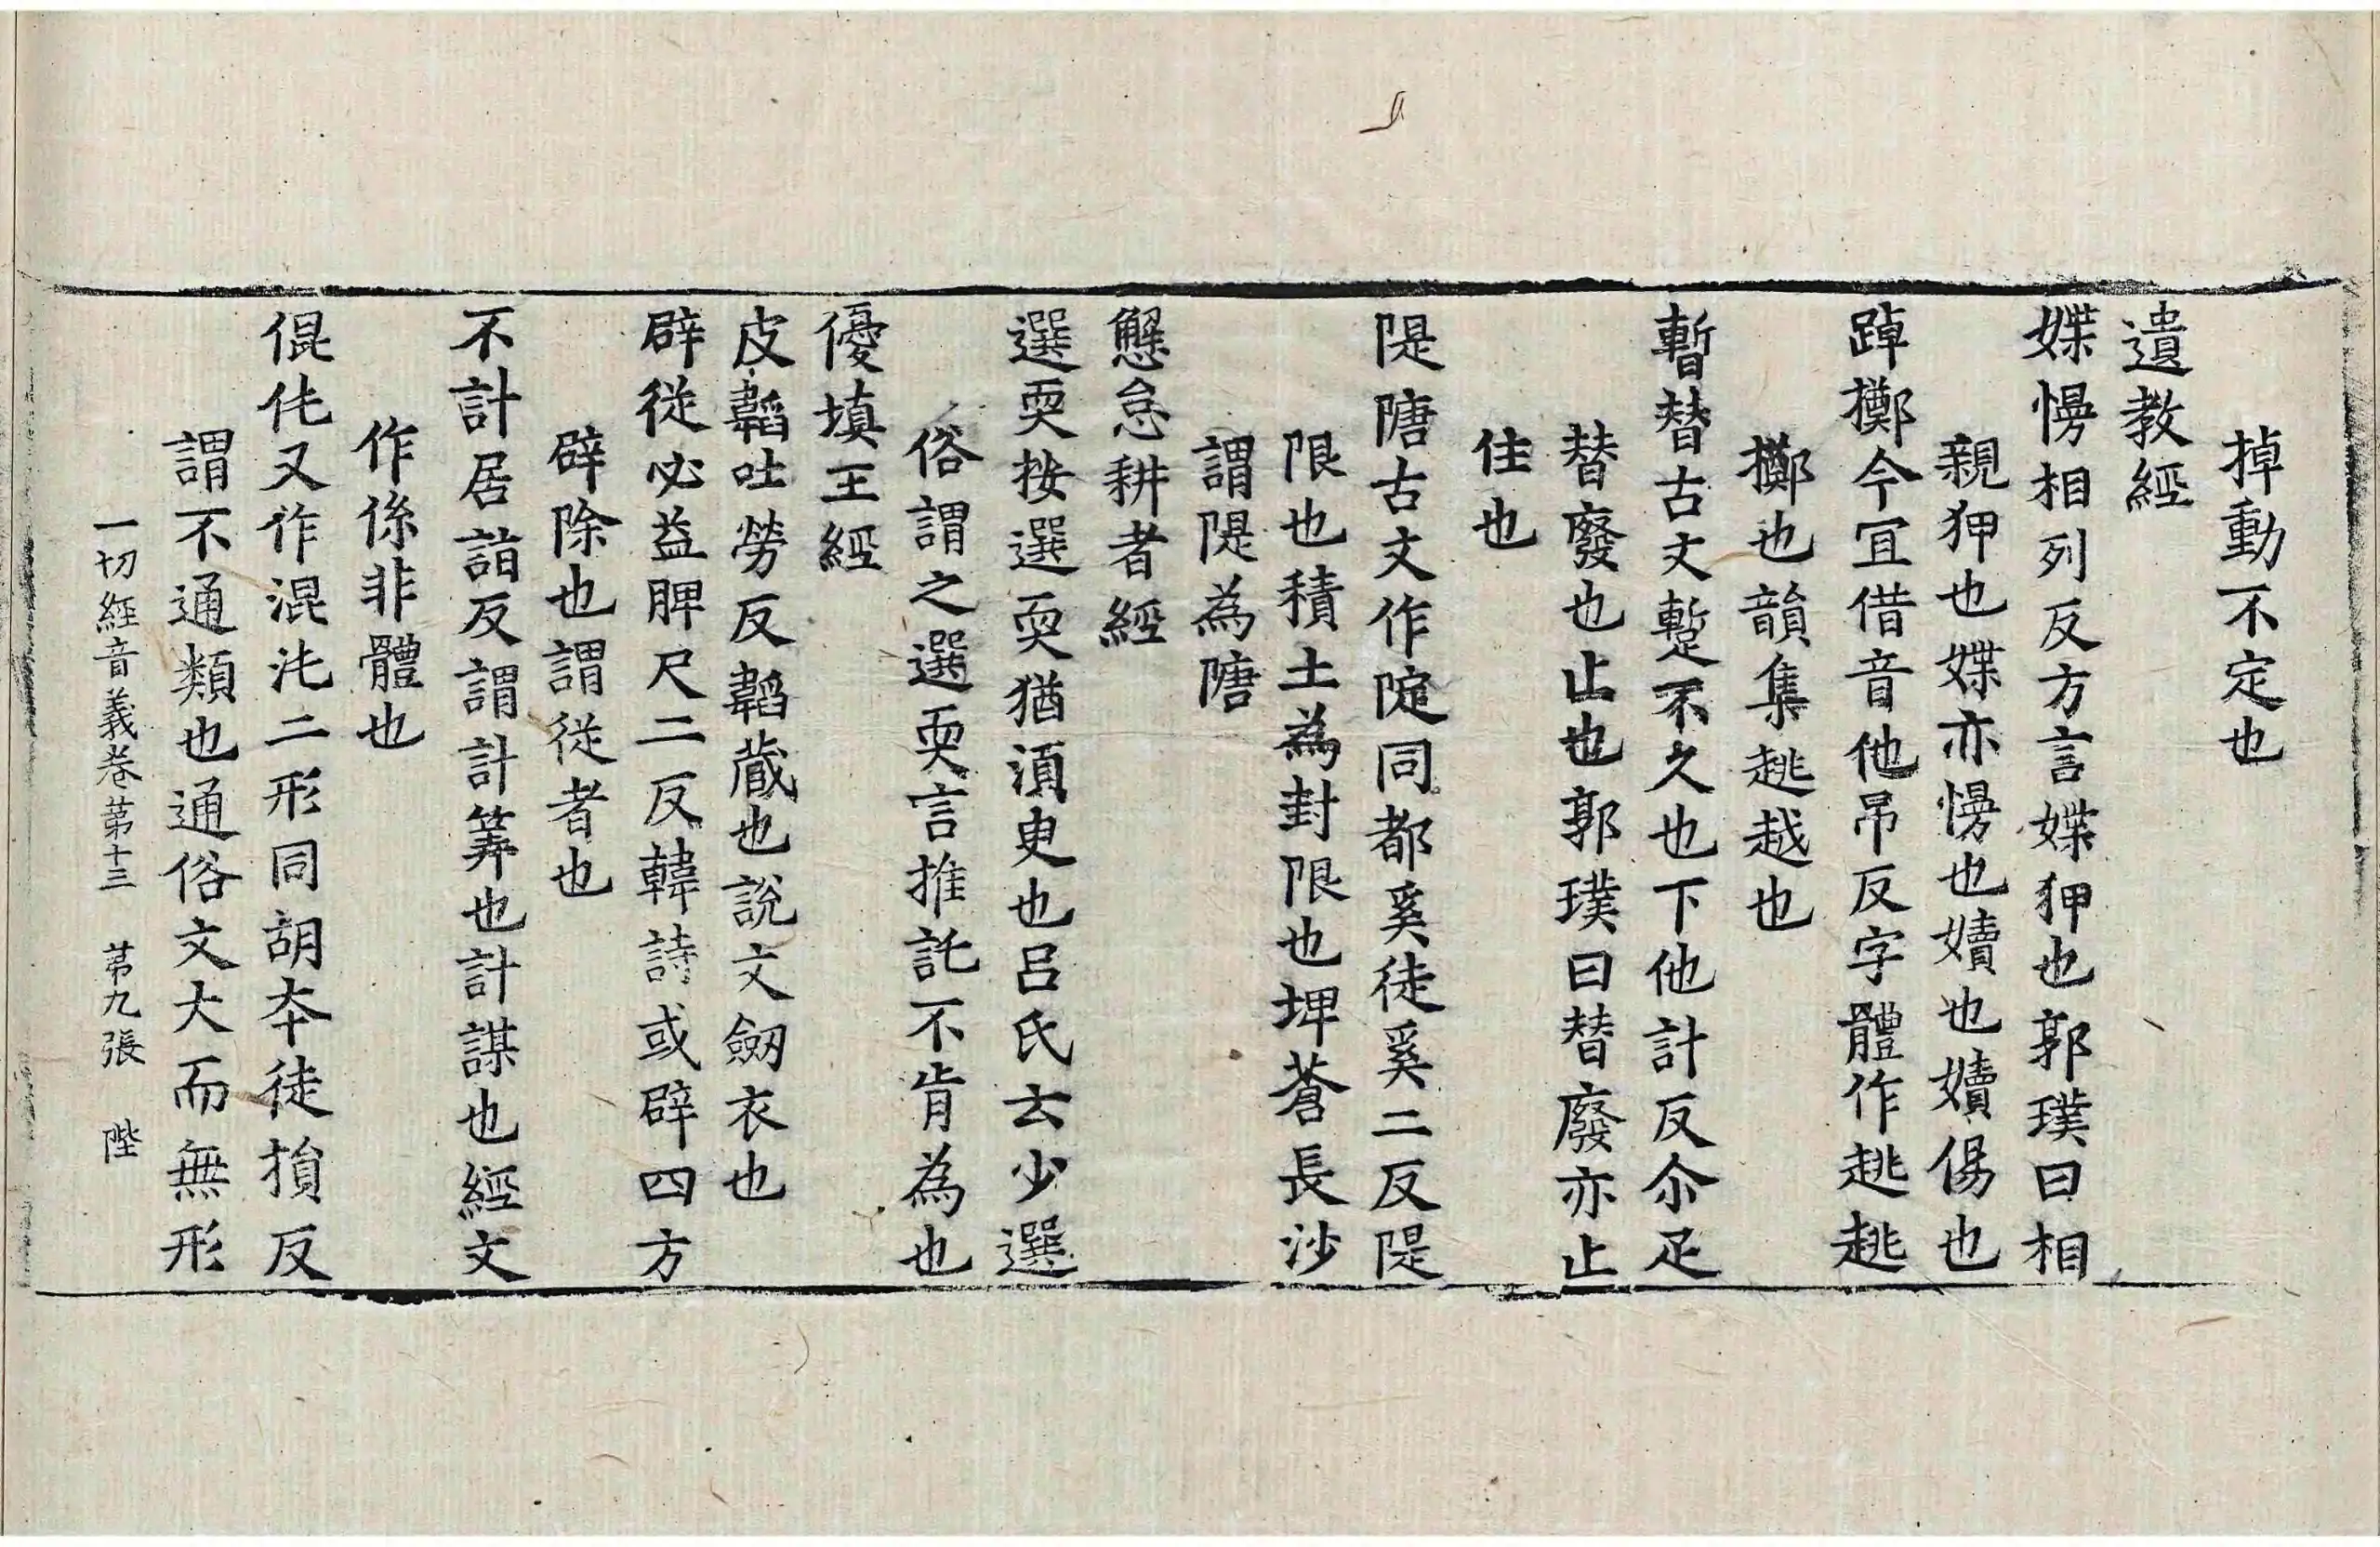 掉動不定也
遺教經
媟慢相列反方言媟狎也郭璞曰相
親狎也媟亦慢也嬻也嬻傷也
踔擲今冝借音他吊反字體作趒趒
擲也韻集趒越也
暫替古文蹔不久也下他計反尒疋
替廢也止也郭璞曰替廢亦止
住也
隄隯古文作隄同都奚徒奚二反隄
限也積土為封限也埤蒼長沙
謂隄為隯
懈怠耕者經
選耎按選選耎猶湏臾也呂氏云少選
俗謂之選耎言推託不肯為也
優填王經
皮韜吐勞反韜蔵也說文劒衣也
辟從必益脾尺二反韓詩或辟四方
辟除也謂從者也
不計居詣反謂計筭也計謀也經文
作係非體也
倱伅又作混沌二形同胡夲徒損反
謂不通類也通俗文大而無形
一切經音義卷第十三 苐九張 陛